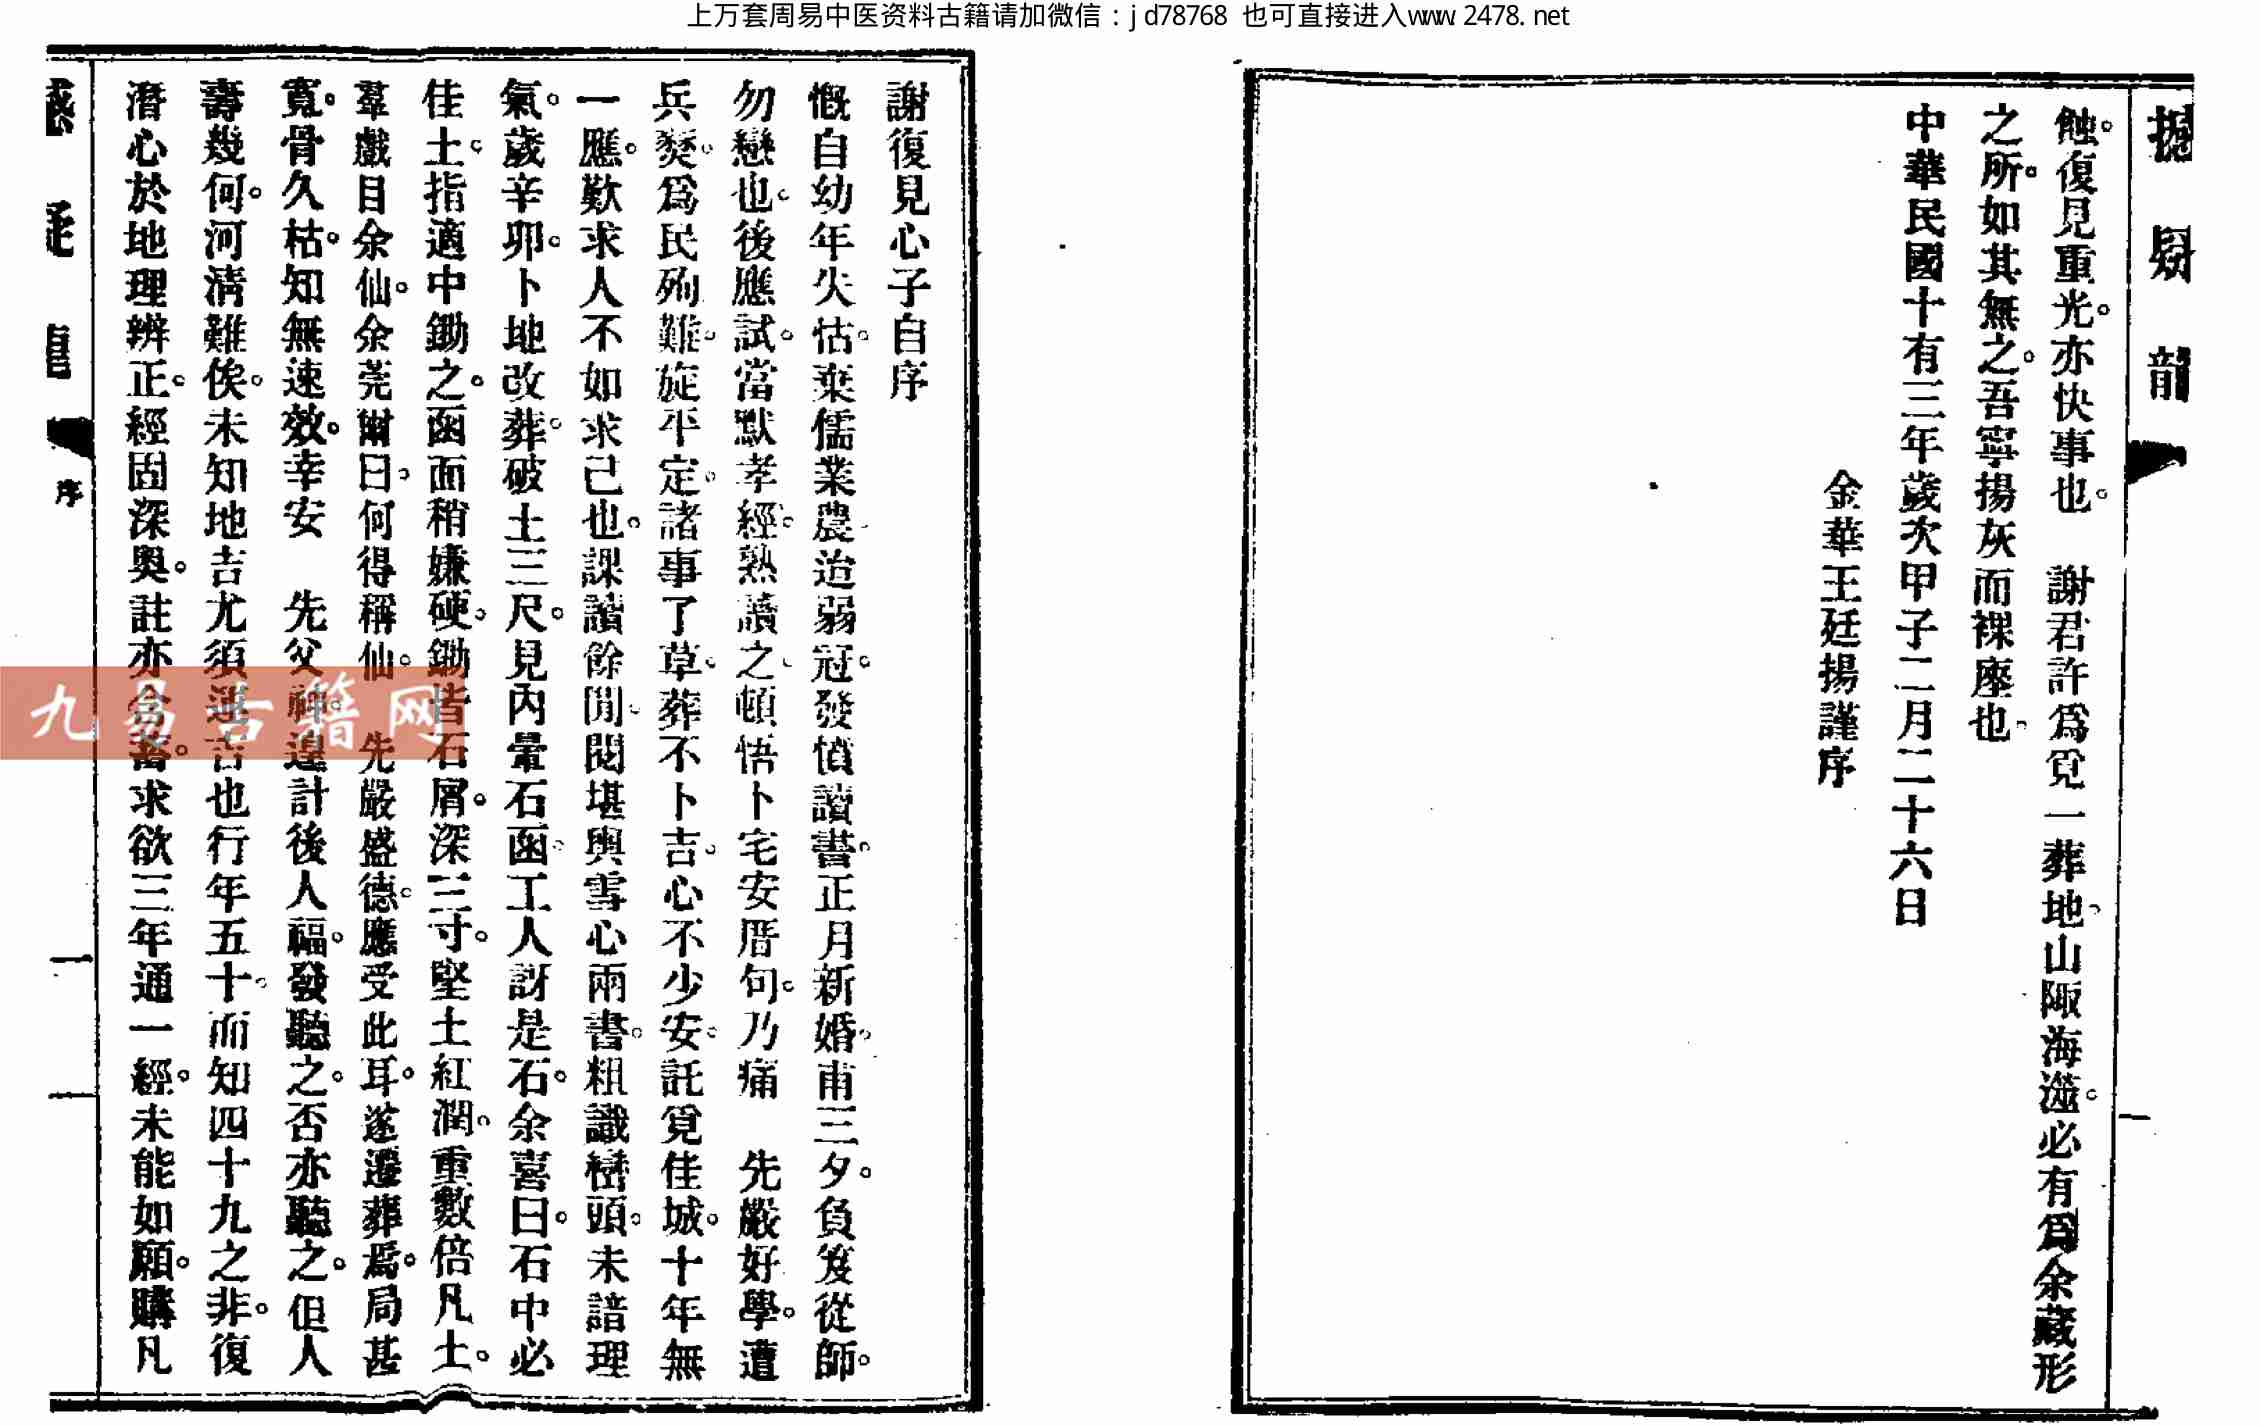 上万套周易中医资料古籍请加微信：jd78768 也可直接进入www.2478.net
撼疑龍
蝕。復見重光。亦快事也。 謝君許爲覓一葬地。山陬海澨。必有爲余藏形
之所。如其無之。吾寧揚灰而裸塋也。
中華民國十有三年歲次甲子二月二十六日
金華王廷揚謹序
謝復見心子自序
慨自幼年失怙。棄儒業農。迨弱冠。發憤讀書。正月新婚。甫三夕。負笈從師。
勿戀也。後應試。當默孝經。熟讀之。頓悟卜宅安厝句。乃痛 先嚴好學。遭
兵燹。爲民殉難。旋平定。諸事了草。葬不卜吉。心不少安。託覓佳城。十年無
一應。歎求人不如求己也。課讀餘閒。閱堪輿雪心兩書。粗識巒頭。未諳理
氣。歲辛卯。卜地改葬。破土三尺。見內暈石函。工人訝是石。余喜曰。石中必
佳土。指適中鋤之。函面稍嫌硬。鋤皆石屑。深三寸。堅土紅潤。重數倍凡土。
羣戲目余仙。余莞爾曰。何得稱仙。 先嚴盛德。應受此耳。遂遷葬焉。局甚
寬。骨久枯。知無速效。幸安 先父神。遑計後人福。發聽之。否亦聽之。但人
壽幾何。河清難俟。未知地吉尤須運吉也行年五十。而知四十九之非。復
潛心於地理辨正。經固深奧。註亦含畜。求欲三年通一經。未能如願。購凡
撼疑龍
序
一
九易古籍网